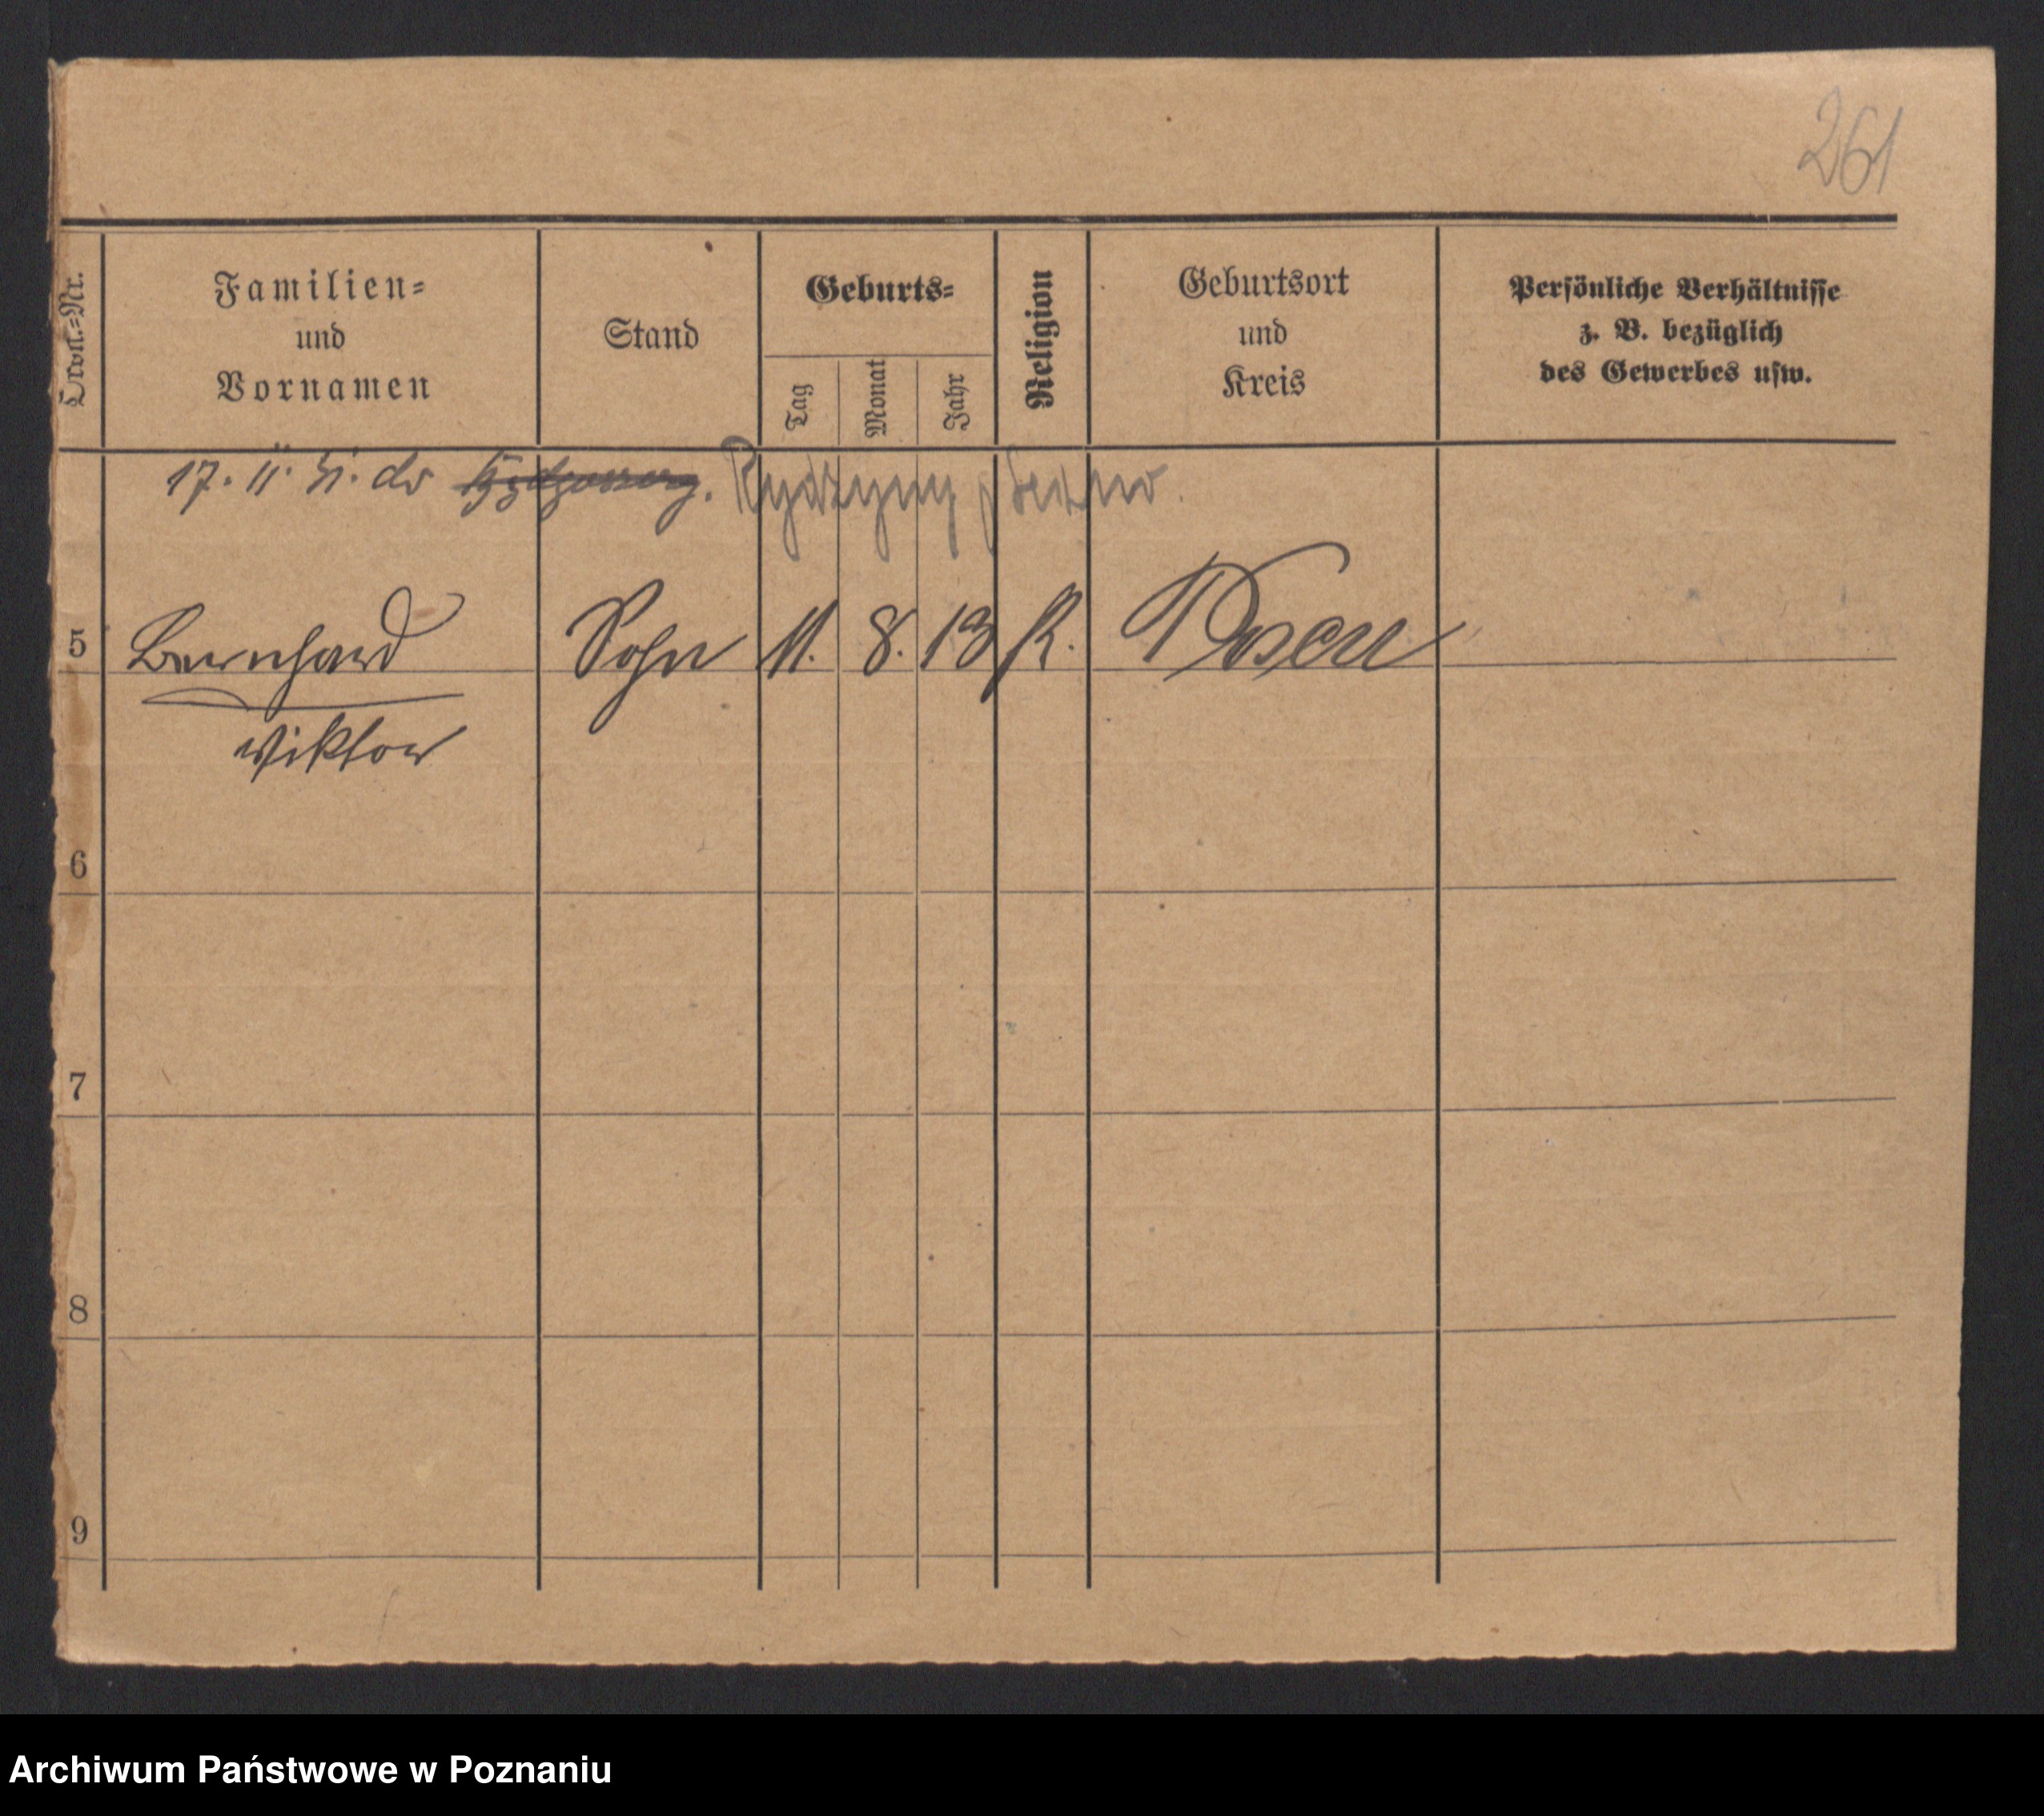 261
Ordn.-Nr.
Familien-
und
Vornamen
Stand
Geburts-
Tag
Monat
Jahr
Religion
Geburtsort
und
Kreis
Persönliche Verhältnisse
z. B. bezüglich
des Gewerbes usw.
17. 11. 21. do Bydgoszczy.
5 Bernhard Sohn 11. 8. 13 K. Posen
Viktor
6
7
8
9
Archiwum Państwowe w Poznaniu